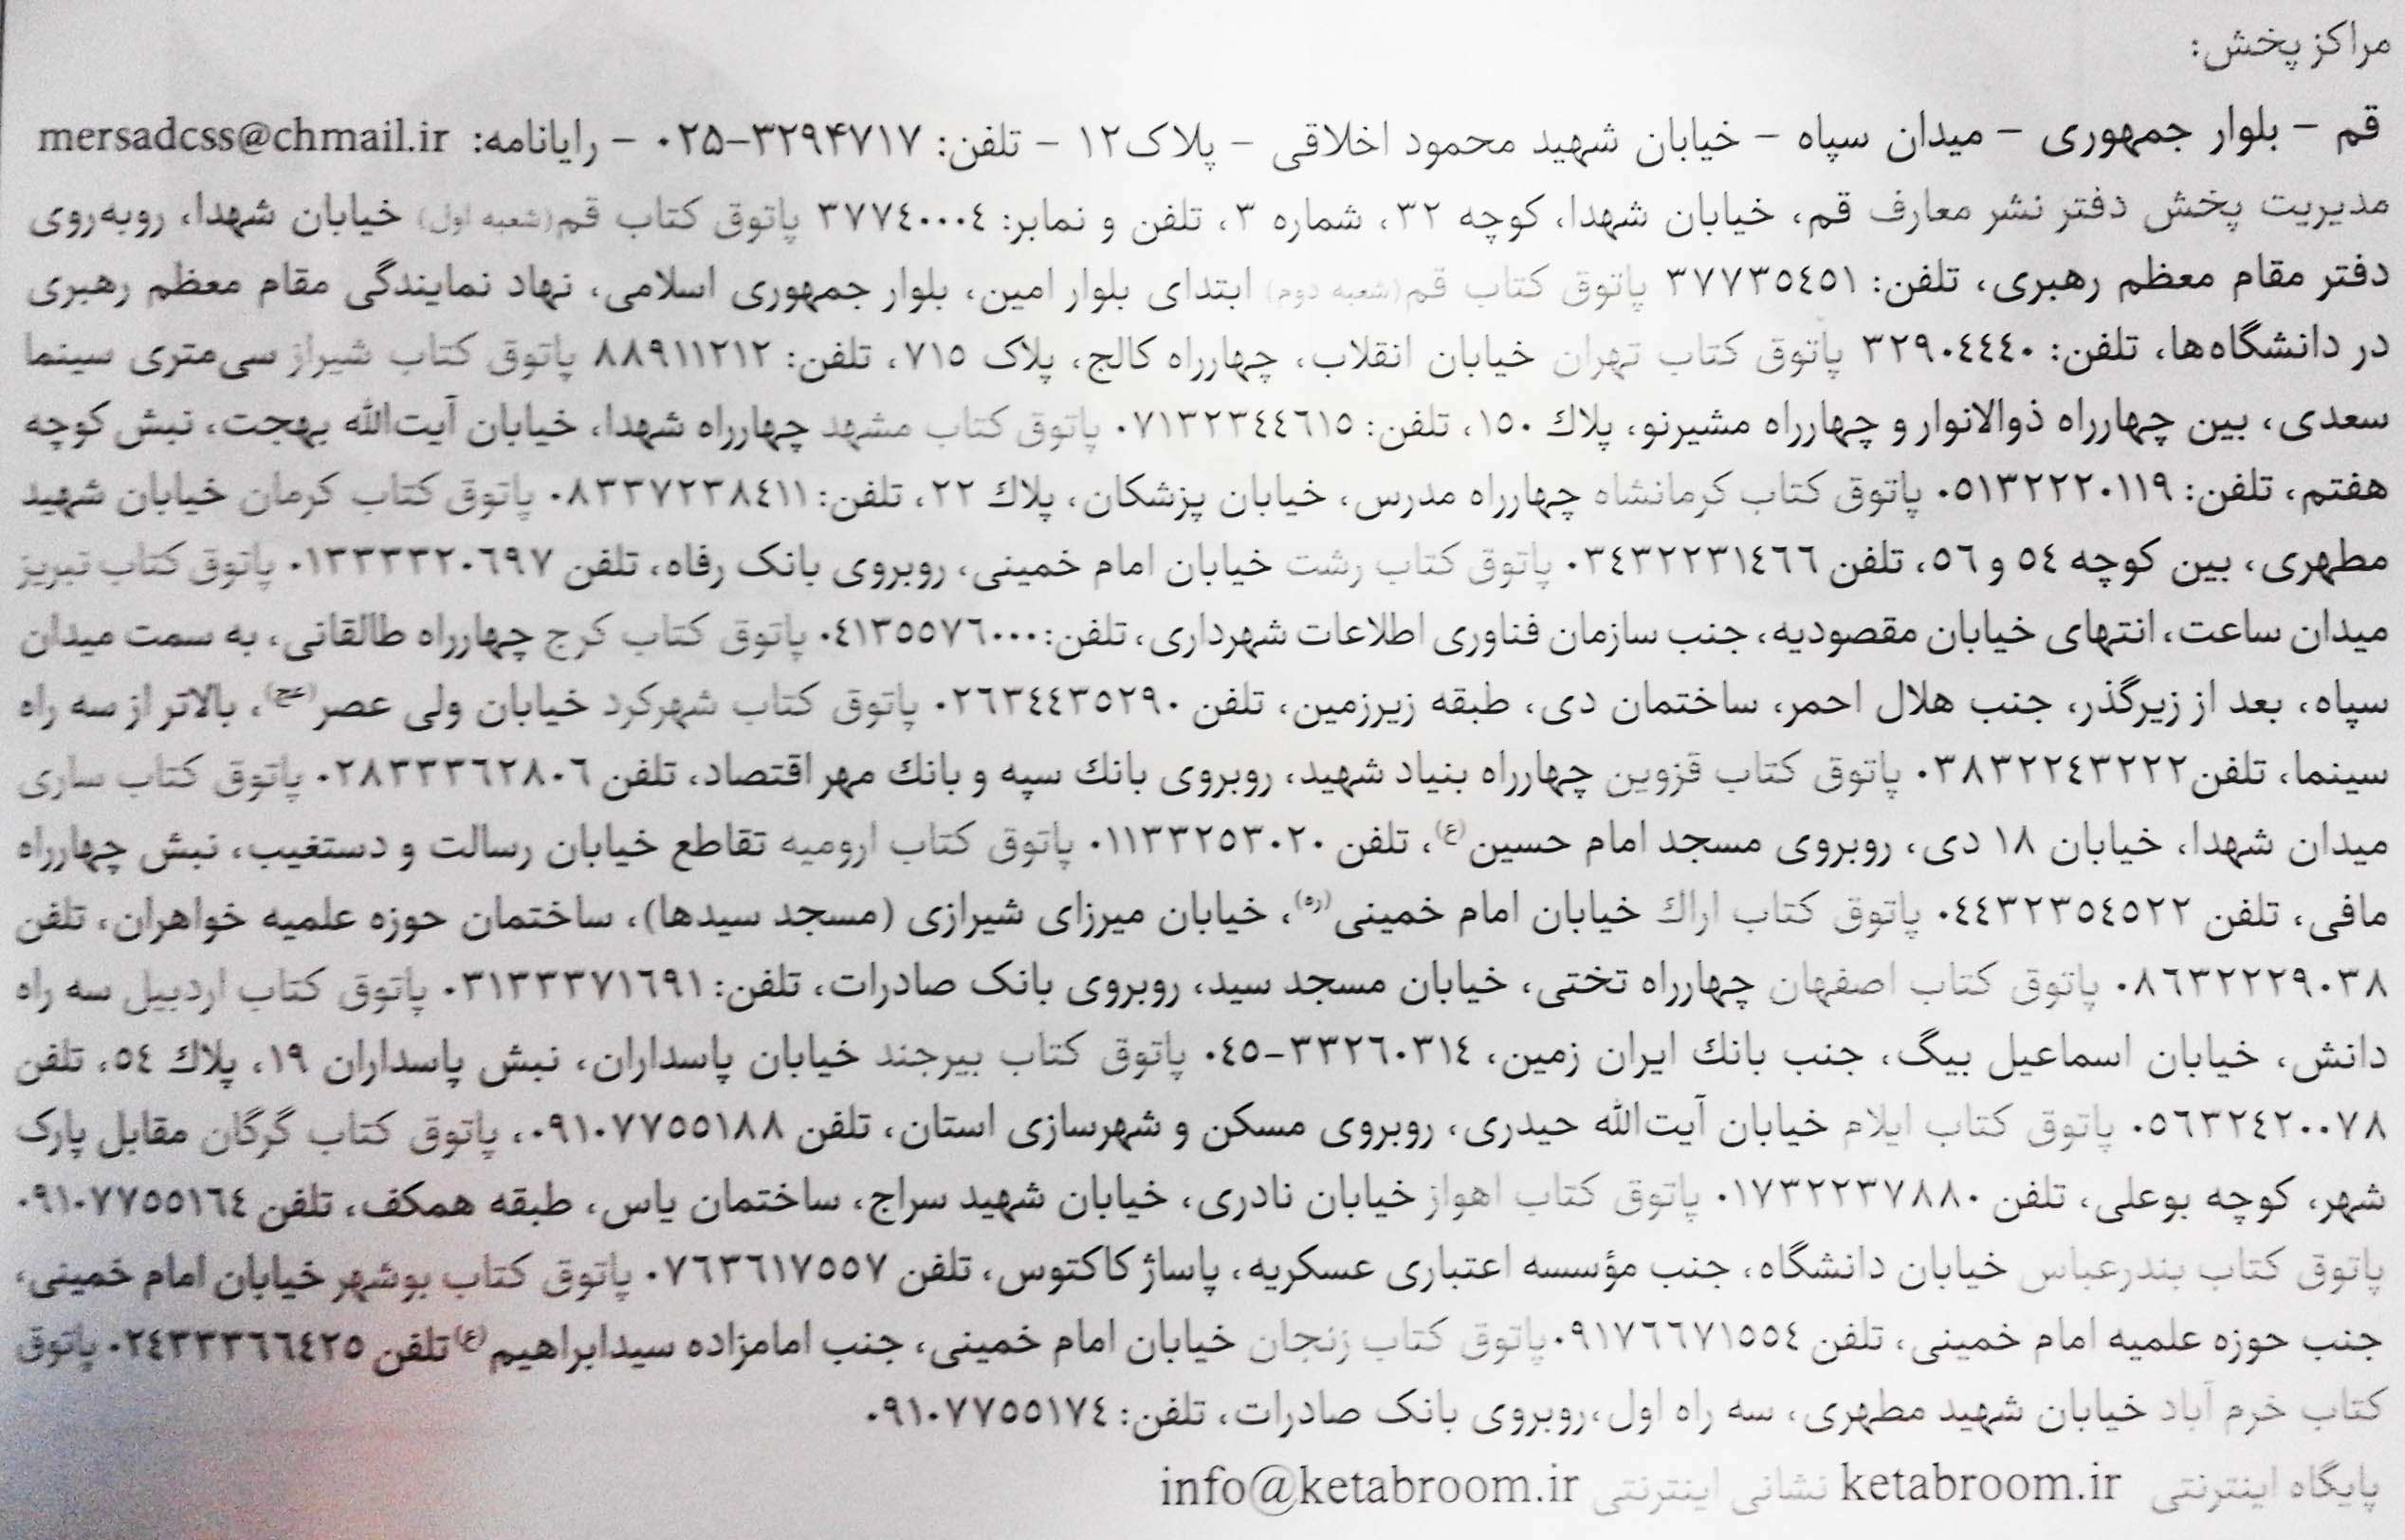 مراکز پخش:
قم – بلوار جمهوری – میدان سپاه – خیابان شهید محمود اخلاقی – پلاک۱۲ – تلفن: ۳۲۹۴۷۱۷–۰۲۵ – رایانامه: mersadcss@chmail.ir
مدیریت پخش دفتر نشر معارف قم، خیابان شهدا، کوچه ۳۲، شماره ۳، تلفن و نمابر: ۳۷۷٤۰۰۰٤ پاتوق کتاب قم(شعبه اول) خیابان شهدا، روبه‌روی
دفتر مقام معظم رهبری، تلفن: ۳۷۷۳٥٤٥۱ پاتوق کتاب قم(شعبه دوم) ابتدای بلوار امین، بلوار جمهوری اسلامی، نهاد نمایندگی مقام معظم رهبری
در دانشگاه‌ها، تلفن: ۳۲۹۰٤٤٤۰ پاتوق کتاب تهران خیابان انقلاب، چهارراه کالج، پلاک ۷۱٥، تلفن: ۸۸۹۱۱۲۱۲ پاتوق کتاب شیراز سی‌متری سینما
سعدی، بین چهارراه ذوالانوار و چهارراه مشیرنو، پلاك ۱٥۰، تلفن: ۰۷۱۳۲۳٤٤٦۱٥ پاتوق کتاب مشهد چهارراه شهدا، خیابان آیت‌الله بهجت، نبش کوچه
هفتم، تلفن: ۰٥۱۳۲۲۲۰۱۱۹ پاتوق کتاب کرمانشاه چهارراه مدرس، خیابان پزشکان، پلاك ۲۲، تلفن: ۰۸۳۳۷۲۳۸٤۱۱ پاتوق کتاب کرمان خیابان شهید
مطهری، بین کوچه ٥٤ و ٥٦، تلفن ۰۳٤۳۲۲۳۱٤٦٦ پاتوق کتاب رشت خیابان امام خمینی، روبروی بانک رفاه، تلفن ۰۱۳۳۳۳۲۰٦۹۷ پاتوق کتاب تبریز
میدان ساعت، انتهای خیابان مقصودیه، جنب سازمان فناوری اطلاعات شهرداری، تلفن: ۰٤۱۳٥٥۷٦۰۰۰ پاتوق کتاب کرج چهارراه طالقانی، به سمت میدان
سپاه، بعد از زیرگذر، جنب هلال احمر، ساختمان دی، طبقه زیرزمین، تلفن ۰۲٦۳٤٤۳٥۲۹۰ پاتوق کتاب شهرکرد خیابان ولی عصر(عج)، بالاتر از سه راه
سینما، تلفن۰۳۸۳۲۲٤۳۲۲۲ پاتوق کتاب قزوین چهارراه بنیاد شهید، روبروی بانك سپه و بانك مهر اقتصاد، تلفن ۰۲۸۳۳۳٦۲۸۰٦ پاتوق کتاب ساری
میدان شهدا، خیابان ۱۸ دی، روبروی مسجد امام حسین(ع)، تلفن ۰۱۱۳۳۲٥۳۰۲۰ پاتوق کتاب ارومیه تقاطع خیابان رسالت و دستغیب، نبش چهارراه
مافی، تلفن ۰٤٤۳۲۳٥٤٥۲۲ پاتوق کتاب اراك خیابان امام خمینی(ره)، خیابان میرزای شیرازی (مسجد سیدها)، ساختمان حوزه علمیه خواهران، تلفن
۰۸٦۳۲۲۲۹۰۳۸ پاتوق کتاب اصفهان چهارراه تختی، خیابان مسجد سید، روبروی بانک صادرات، تلفن: ۰۳۱۳۳۳۷۱٦۹۱ پاتوق کتاب اردبیل سه راه
دانش، خیابان اسماعیل بیگ، جنب بانك ایران زمین، ۳۳۲٦۰۳۱٤–۰٤٥ پاتوق کتاب بیرجند خیابان پاسداران، نبش پاسداران ۱۹، پلاك ٥٤، تلفن
۰٥٦۳۲٤۲۰۰۷۸ پاتوق کتاب ایلام خیابان آیت‌الله حیدری، روبروی مسکن و شهرسازی استان، تلفن ۰۹۱۰۷۷٥٥۱۸۸، پاتوق کتاب گرگان مقابل پارک
شهر، کوچه بوعلی، تلفن ۰۱۷۳۲۲۳۷۸۸۰ پاتوق کتاب اهواز خیابان نادری، خیابان شهید سراج، ساختمان یاس، طبقه همکف، تلفن ۰۹۱۰۷۷٥٥۱٦٤
پاتوق کتاب بندرعباس خیابان دانشگاه، جنب مؤسسه اعتباری عسکریه، پاساژ کاکتوس، تلفن ۰۷٦۳٦۱۷٥٥۷ پاتوق کتاب بوشهر خیابان امام خمینی،
جنب حوزه علمیه امام خمینی، تلفن ۰۹۱۷٦٦۷۱٥٥٤پاتوق کتاب زنجان خیابان امام خمینی، جنب امامزاده سیدابراهیم(ع) تلفن ۰۲٤۳۳۳٦٦٤۲٥ پاتوق
کتاب خرم آباد خیابان شهید مطهری، سه راه اول،روبروی بانک صادرات، تلفن: ۰۹۱۰۷۷٥٥۱۷٤
پایگاه اینترنتی ketabroom.ir نشانی اینترنتی info@ketabroom.ir